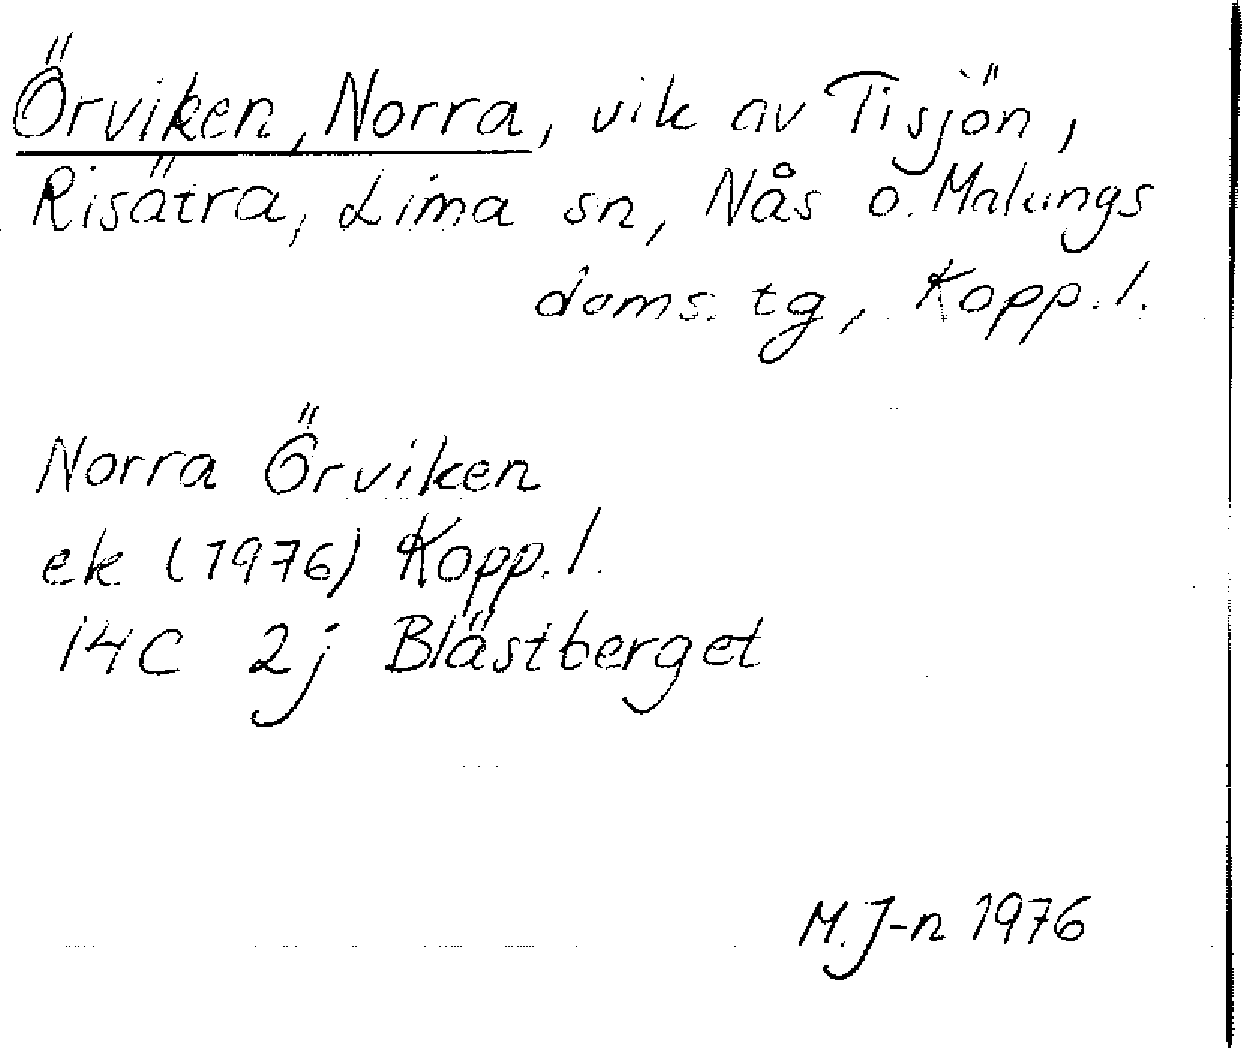 Örviken, Norra, vik av Tisjön,
Risätra, Lima sn, Nås o. Malungs
doms. tg, Kopp. l.
Norra Örviken
ek (1976) Kopp. l.
14C 2j Blästberget
M. J-n 1976